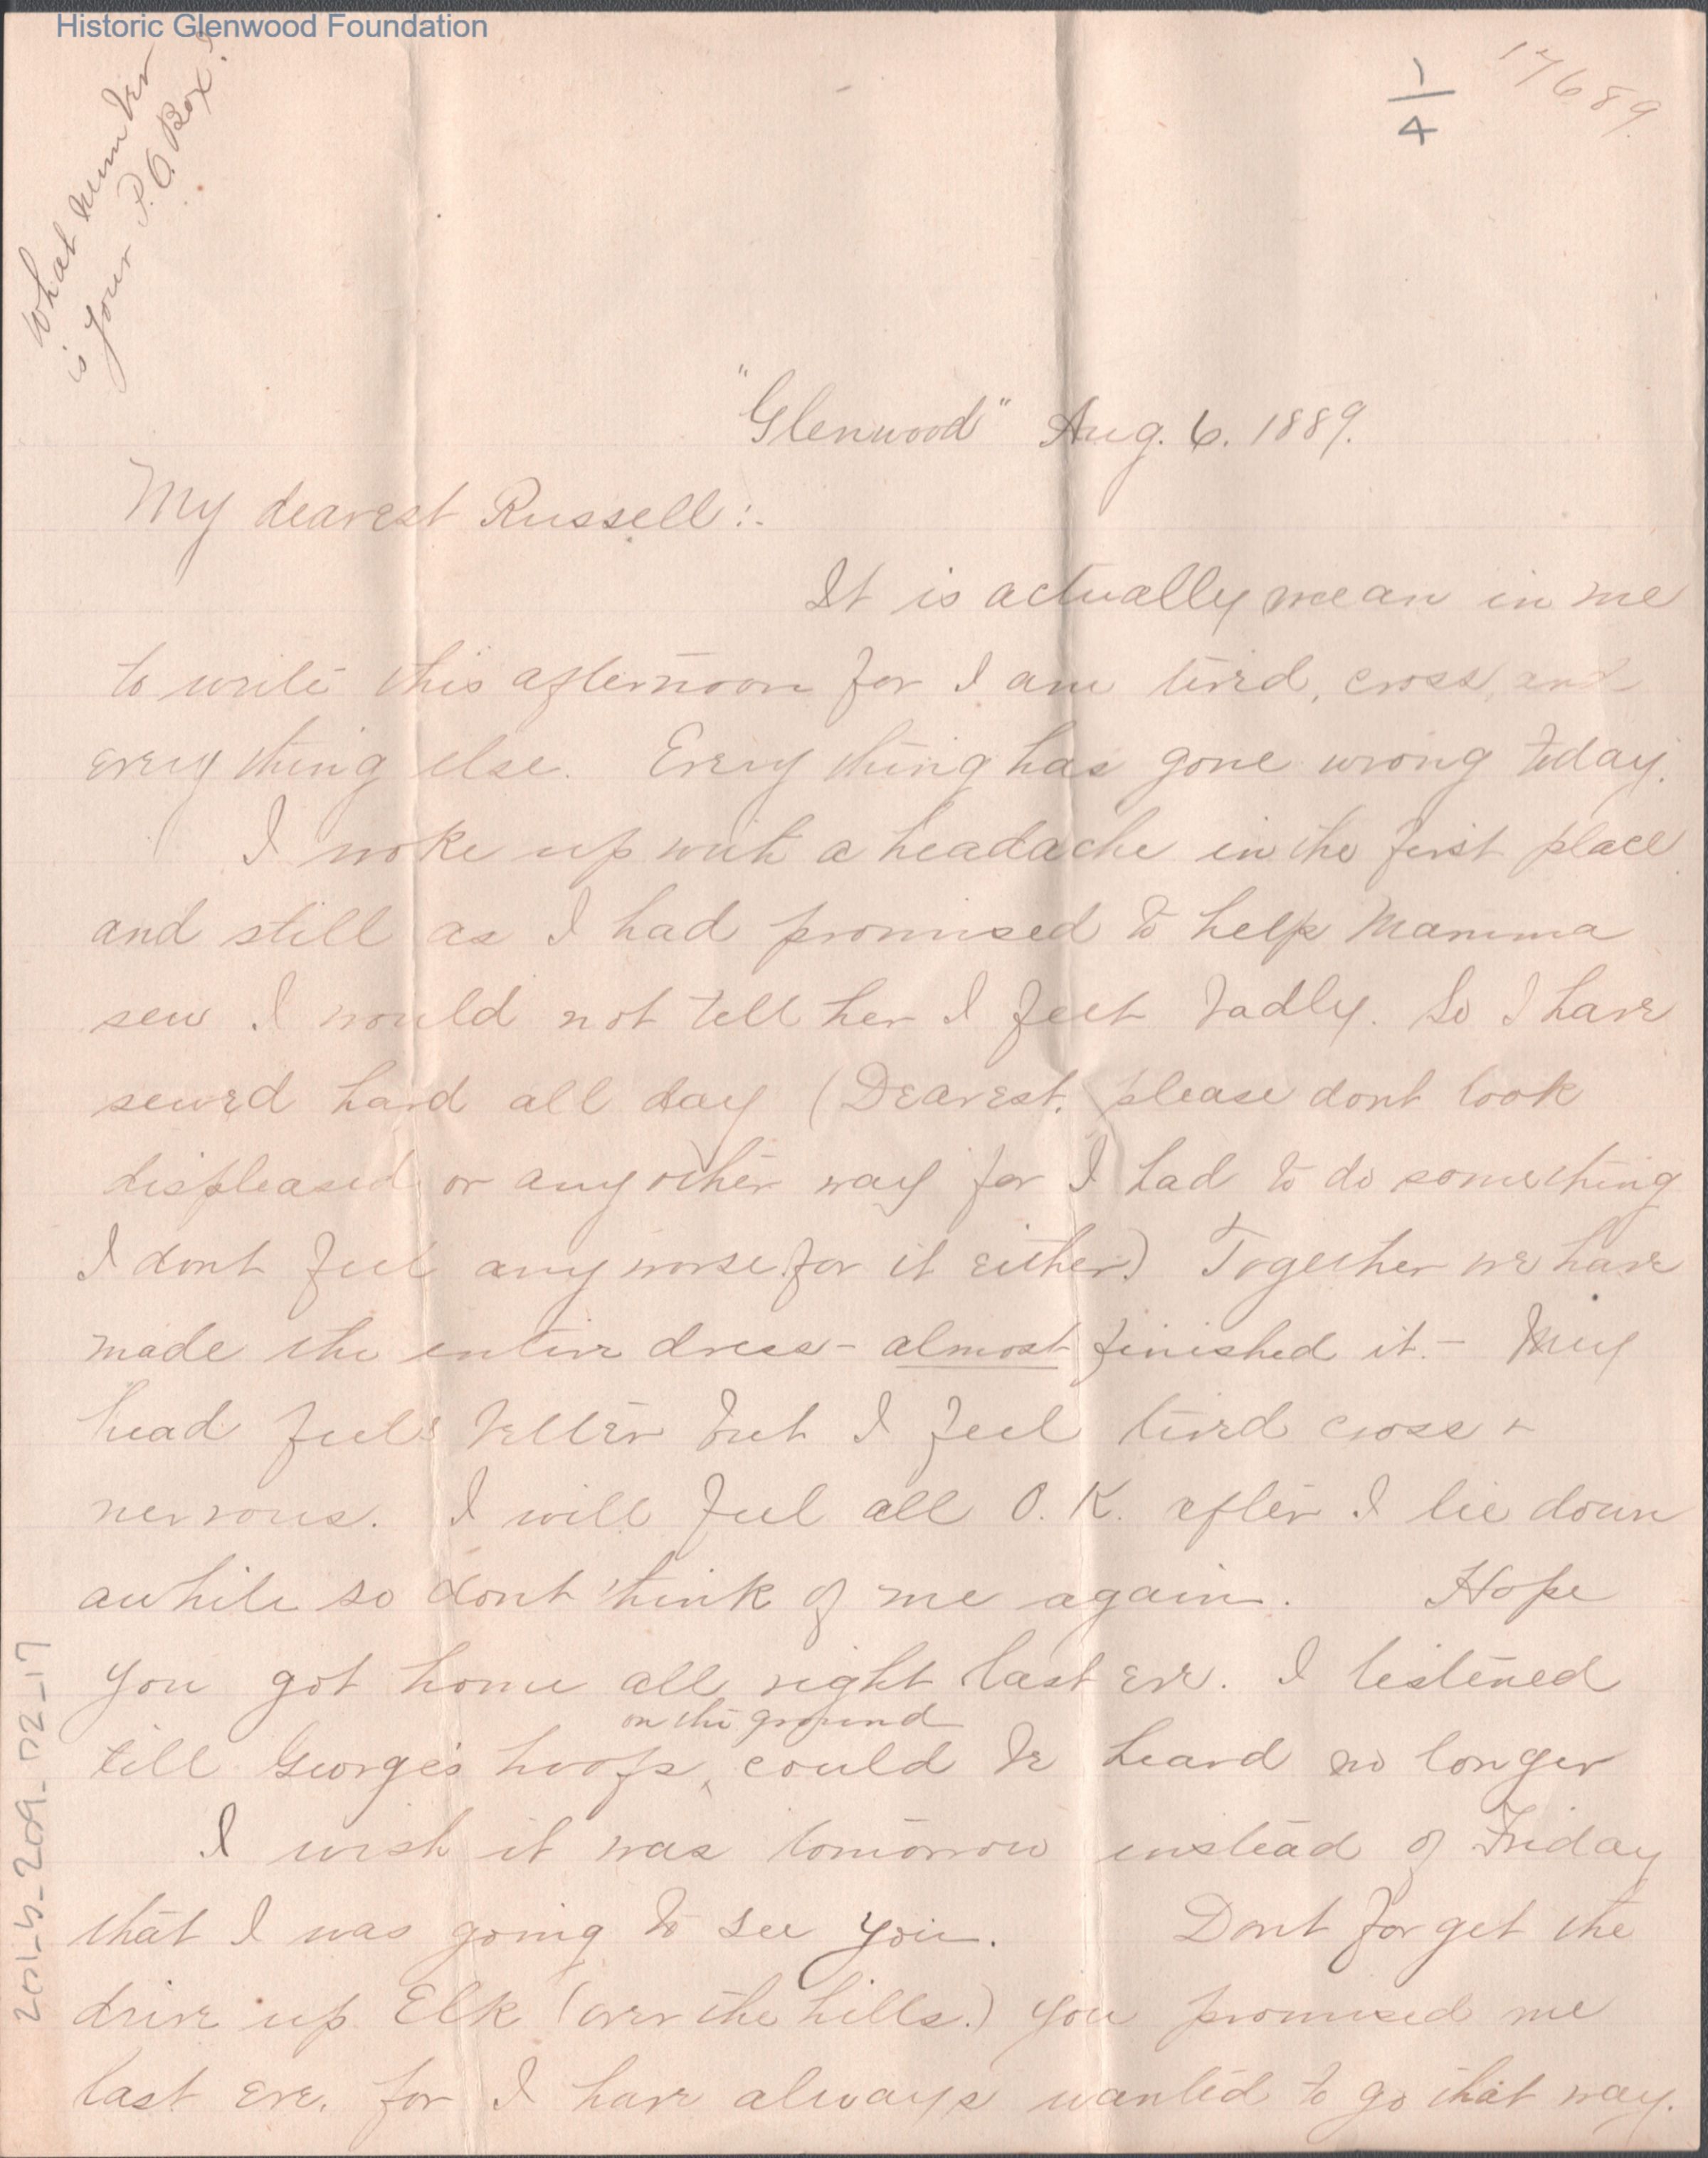 Historic Glenwood Foundation
What number
is your P.O. Box?
1/4
17689
"Glenwood" Aug. 6. 1889.
My dearest Russell:.
It is actually mean in me
to write this afternoon for I am tired, cross, and
every thing else. Every thing has gone wrong today.
I woke up with a headache in the first place
and still as I had promised to help Mamma
sew I would not tell her I felt badly. So I have
sewed hard all day (Dearest, please dont look
displeased or any other way for I had to do something
I dont feel any worse for it either.) Together we have
made the entire dress - almost finished it. - My
head feels better but I feel tired cross +
nervous. I will feel all O.K. after I lie down
awhile so dont think of me again. Hope
you got home all right last eve. I listened
on the ground
till George's hoofs could be heard no longer
I wish it was tomorrow instead of Friday
that I was going to see you. Dont forget the
drive up Elk (over the hills.) you promised me
last eve. for I have always wanted to go that way.
2011_5_209_02_17